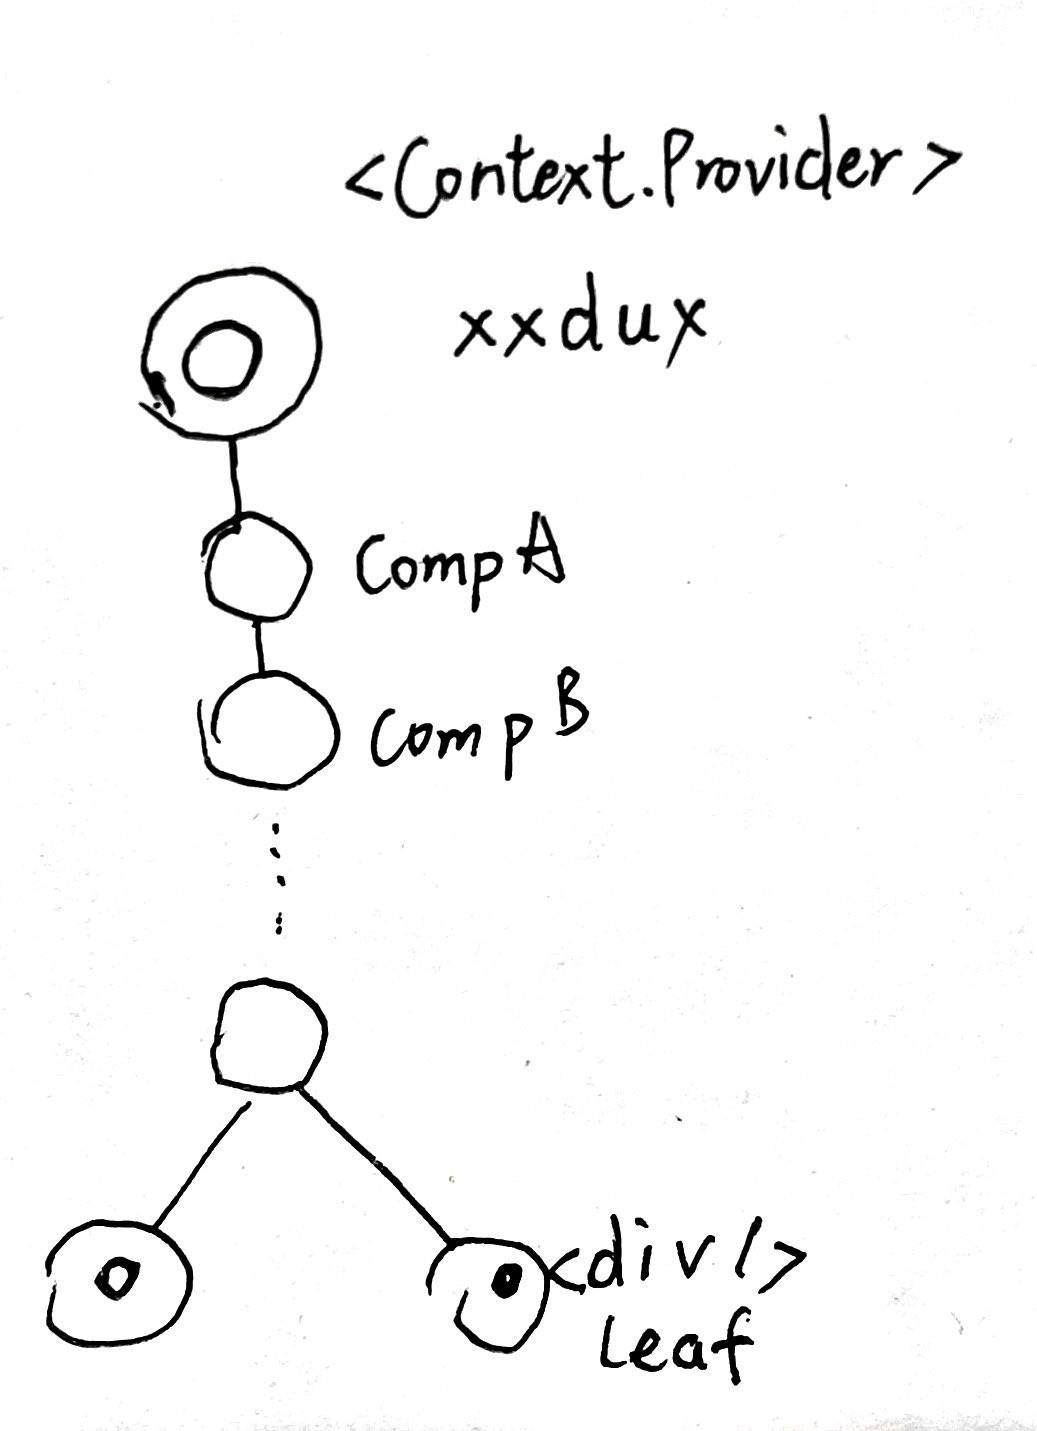 <Context.Provider>
xxdux
CompA
CompB
<div/>
leaf